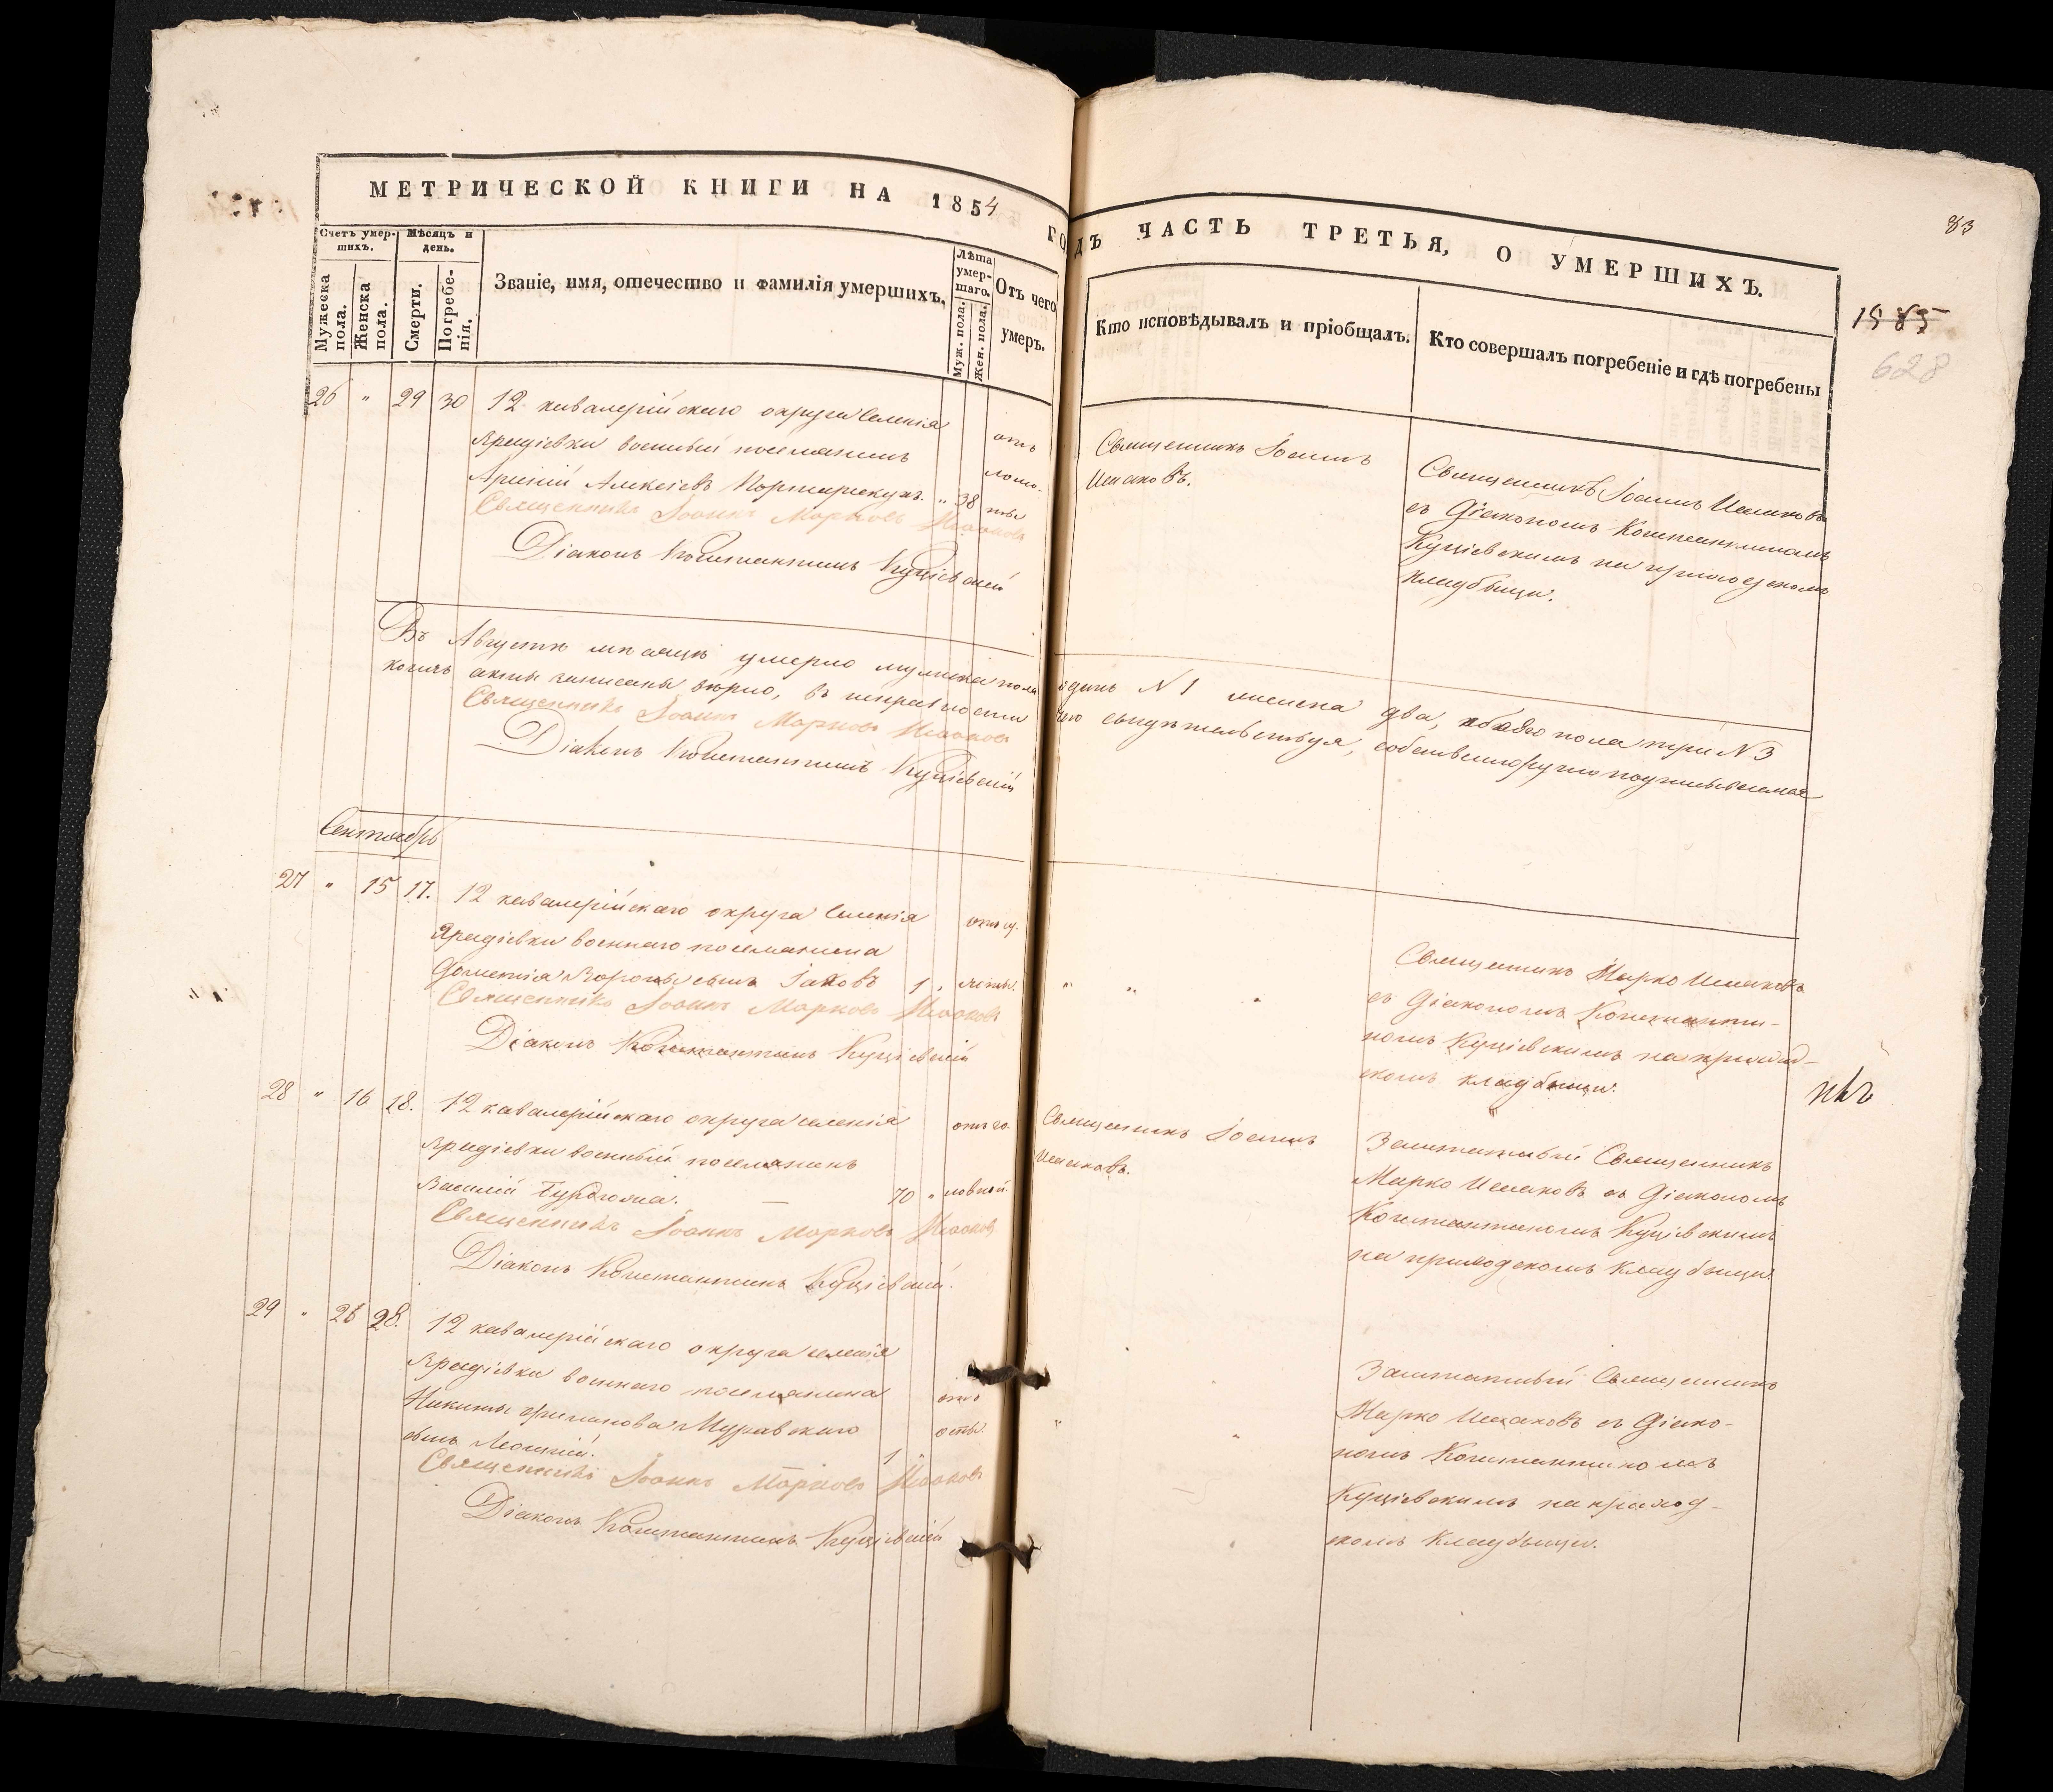 МЕТРИЧЕСКОЙ КНИГИ НА 1854 ГО
Счетъ умер-
шихъ.
Мужеска
пола.
Женска
пола.
Мѣсяцъ и
день.
Смерти.
Погребе-
нія.
Званіе, имя, отечество и фамилія умершихъ.
Лѣта
умер-
шаго.
Муж. пола.
Жен. пола.
Отъ чего
умеръ.
26 " 29 30 12 кавалерійскаго округа Селенія
военный поселянинъ
Алексѣевъ " 38
отъ
Священникъ Іоаннъ Марковъ Исаковъ
Діаконъ Константинъ Куціевскій
Въ Августѣ мѣсяцѣ умерло мужеска пола
коихъ акты записаны вѣрно, въ исправности
Священникъ Іоаннъ Марковъ Исаковъ
Діаконъ Константинъ Куціевскій
Сентябрь
27 " 15 17. 12 кавалерійскаго округа Селенія
военнаго поселянина
сынъ Іаковъ 1 "
Священникъ Іоаннъ Марковъ Исаковъ
Діаконъ Константинъ Куціевскій
28 " 16 18. 12 кавалерійскаго округа селенія
военный поселянинъ
Василій — 70 "
Священникъ Іоаннъ Марковъ Исаковъ
Діаконъ Константинъ Куціевскій.
29 " 26 28. 12 кавалерійскаго округа селенія
военнаго поселянина
Никиты Муравскаго
сынъ 1 "
отъ
Священникъ Іоаннъ Марковъ Исаковъ
Діаконъ Константинъ Куціевскій
83
ДЪ ЧАСТЬ ТРЕТЬЯ, О УМЕРШИХЪ.
1585
628
Кто исповѣдывалъ и пріобщалъ.
Кто совершалъ погребеніе и гдѣ погребены
Священникъ Іоаннъ
Исаковъ.
Священникъ Іоаннъ Исаковъ
съ Діакономъ Константиномъ
Куціевскимъ на приходскомъ
кладбищи.
одинъ N 1 женска два, обоего пола три N 3
чемъ свидѣтельствуя, собственноручно подписываемся
Священникъ Марко Исаковъ
съ Діакономъ Константи-
номъ Куціевскимъ на приход-
скомъ кладбищи.
Священникъ Іоаннъ
Исаковъ.
Заштатный Священникъ
Марко Исаковъ съ Діакономъ
Константиномъ Куціевскимъ
на приходскомъ кладбищи.
Заштатный Священникъ
Марко Исаковъ съ Діако-
номъ Константиномъ
Куціевскимъ на приход-
скомъ кладбищи.